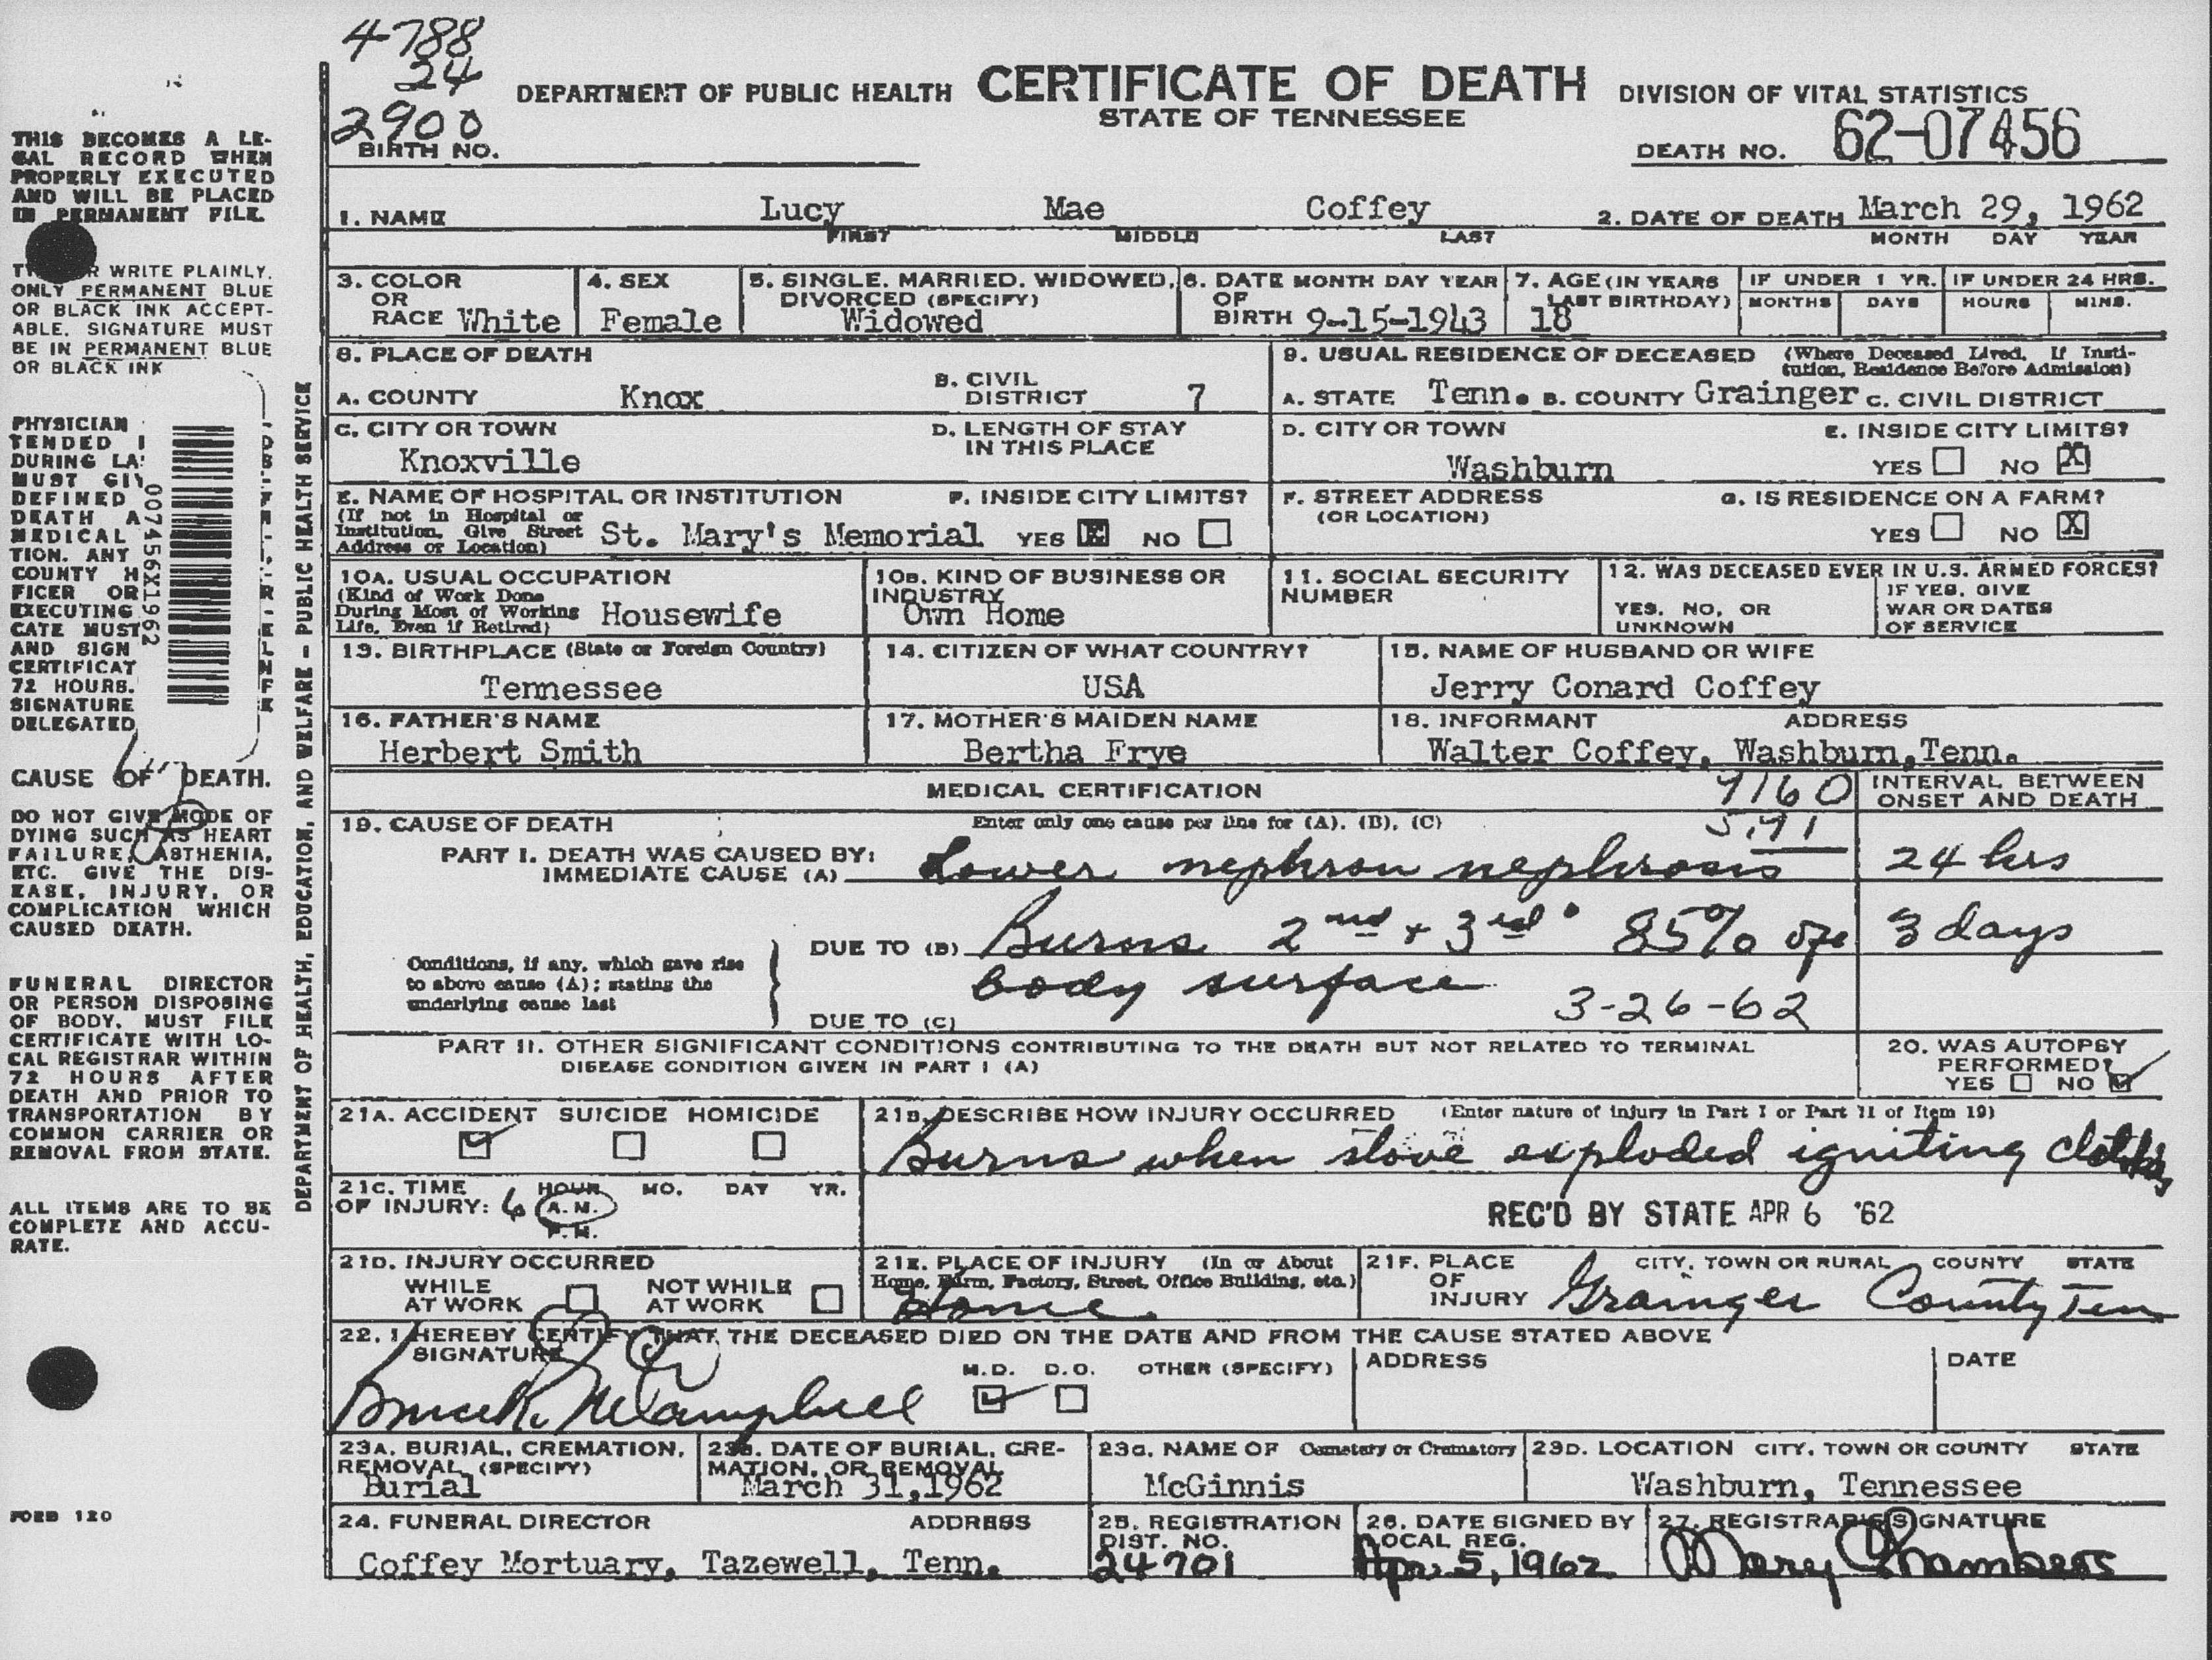 4788
24
2900
BIRTH NO.
DEPARTMENT OF PUBLIC HEALTH CERTIFICATE OF DEATH DIVISION OF VITAL STATISTICS
STATE OF TENNESSEE
DEATH NO. 62-07456
THIS BECOMES A LE-
GAL RECORD WHEN
PROPERLY EXECUTED
AND WILL BE PLACED
IN PERMANENT FILE.
R WRITE PLAINLY.
ONLY PERMANENT BLUE
OR BLACK INK ACCEPT-
ABLE. SIGNATURE MUST
BE IN PERMANENT BLUE
OR BLACK INK
PHYSICIAN
TENDED I
DURING LA
MUST GIV
DEFINED
DEATH A
MEDICAL
TION. ANY
COUNTY H
FICER OR
EXECUTING
CATE MUST
AND SIGN
CERTIFICAT
72 HOURS.
SIGNATURE
DELEGATED
007456X1962
CAUSE OF DEATH.
DO NOT GIVE MODE OF
DYING SUCH AS HEART
FAILURE, ASTHENIA,
ETC. GIVE THE DIS-
EASE, INJURY, OR
COMPLICATION WHICH
CAUSED DEATH.
FUNERAL DIRECTOR
OR PERSON DISPOSING
OF BODY, MUST FILE
CERTIFICATE WITH LO-
CAL REGISTRAR WITHIN
72 HOURS AFTER
DEATH AND PRIOR TO
TRANSPORTATION BY
COMMON CARRIER OR
REMOVAL FROM STATE.
ALL ITEMS ARE TO BE
COMPLETE AND ACCU-
RATE.
FORM 120
DEPARTMENT OF HEALTH, EDUCATION, AND WELFARE - PUBLIC HEALTH SERVICE
1. NAME Lucy Mae Coffey 2. DATE OF DEATH March 29, 1962
FIRST MIDDLE LAST MONTH DAY YEAR
3. COLOR OR RACE White
4. SEX Female
5. SINGLE, MARRIED, WIDOWED, DIVORCED (SPECIFY) Widowed
6. DATE OF BIRTH MONTH DAY YEAR 9-15-1943
7. AGE (IN YEARS LAST BIRTHDAY) 18
IF UNDER 1 YR. MONTHS DAYS
IF UNDER 24 HRS. HOURS MINS.
8. PLACE OF DEATH
A. COUNTY Knox B. CIVIL DISTRICT 7
C. CITY OR TOWN Knoxville D. LENGTH OF STAY IN THIS PLACE
E. NAME OF HOSPITAL OR INSTITUTION (If not in Hospital or Institution, Give Street Address or Location) St. Mary's Memorial F. INSIDE CITY LIMITS? YES X NO
9. USUAL RESIDENCE OF DECEASED (Where Deceased Lived. If Insti-
tution, Residence Before Admission)
A. STATE Tenn. B. COUNTY Grainger C. CIVIL DISTRICT
D. CITY OR TOWN Washburn E. INSIDE CITY LIMITS? YES NO X
F. STREET ADDRESS (OR LOCATION) G. IS RESIDENCE ON A FARM? YES NO X
10A. USUAL OCCUPATION (Kind of Work Done During Most of Working Life, Even if Retired) Housewife
10B. KIND OF BUSINESS OR INDUSTRY Own Home
11. SOCIAL SECURITY NUMBER
12. WAS DECEASED EVER IN U.S. ARMED FORCES?
YES, NO, OR UNKNOWN IF YES, GIVE WAR OR DATES OF SERVICE
13. BIRTHPLACE (State or Foreign Country) Tennessee
14. CITIZEN OF WHAT COUNTRY? USA
15. NAME OF HUSBAND OR WIFE Jerry Conard Coffey
16. FATHER'S NAME Herbert Smith
17. MOTHER'S MAIDEN NAME Bertha Frye
18. INFORMANT ADDRESS Walter Coffey, Washburn,Tenn.
MEDICAL CERTIFICATION
INTERVAL BETWEEN ONSET AND DEATH
19. CAUSE OF DEATH Enter only one cause per line for (A), (B), (C)
PART I. DEATH WAS CAUSED BY:
IMMEDIATE CAUSE (A) Lower nephron nephrosis 24 hrs
DUE TO (B) Burns 2nd + 3rd ° 85% of 3 days
body surface
Conditions, if any, which gave rise
to above cause (A); stating the
underlying cause last
DUE TO (C) 3-26-62
PART II. OTHER SIGNIFICANT CONDITIONS CONTRIBUTING TO THE DEATH BUT NOT RELATED TO TERMINAL
DISEASE CONDITION GIVEN IN PART I (A)
20. WAS AUTOPSY PERFORMED? YES NO
21A. ACCIDENT SUICIDE HOMICIDE
21B. DESCRIBE HOW INJURY OCCURRED (Enter nature of injury in Part I or Part II of Item 19)
Burns when stove exploded igniting
21C. TIME OF INJURY: 6 HOUR A.M. P.M. MO. DAY YR.
REC'D BY STATE APR 6 '62
21D. INJURY OCCURRED WHILE AT WORK NOT WHILE AT WORK
21E. PLACE OF INJURY (In or About Home, Farm, Factory, Street, Office Building, etc.) Home
21F. PLACE OF INJURY CITY, TOWN OR RURAL COUNTY STATE
Grainger County Ten
22. I HEREBY CERTIFY THAT THE DECEASED DIED ON THE DATE AND FROM THE CAUSE STATED ABOVE
SIGNATURE M.D. D.O. OTHER (SPECIFY) ADDRESS DATE
23A. BURIAL, CREMATION, REMOVAL (SPECIFY) Burial
23B. DATE OF BURIAL, CRE-
MATION, OR REMOVAL March 31,1962
23C. NAME OF Cemetery or Crematory McGinnis
23D. LOCATION CITY, TOWN OR COUNTY STATE Washburn, Tennessee
24. FUNERAL DIRECTOR ADDRESS
Coffey Mortuary, Tazewell, Tenn.
25. REGISTRATION DIST. NO. 24701
26. DATE SIGNED BY LOCAL REG. Apr 5, 1962
27. REGISTRAR'S SIGNATURE Mary Chambers